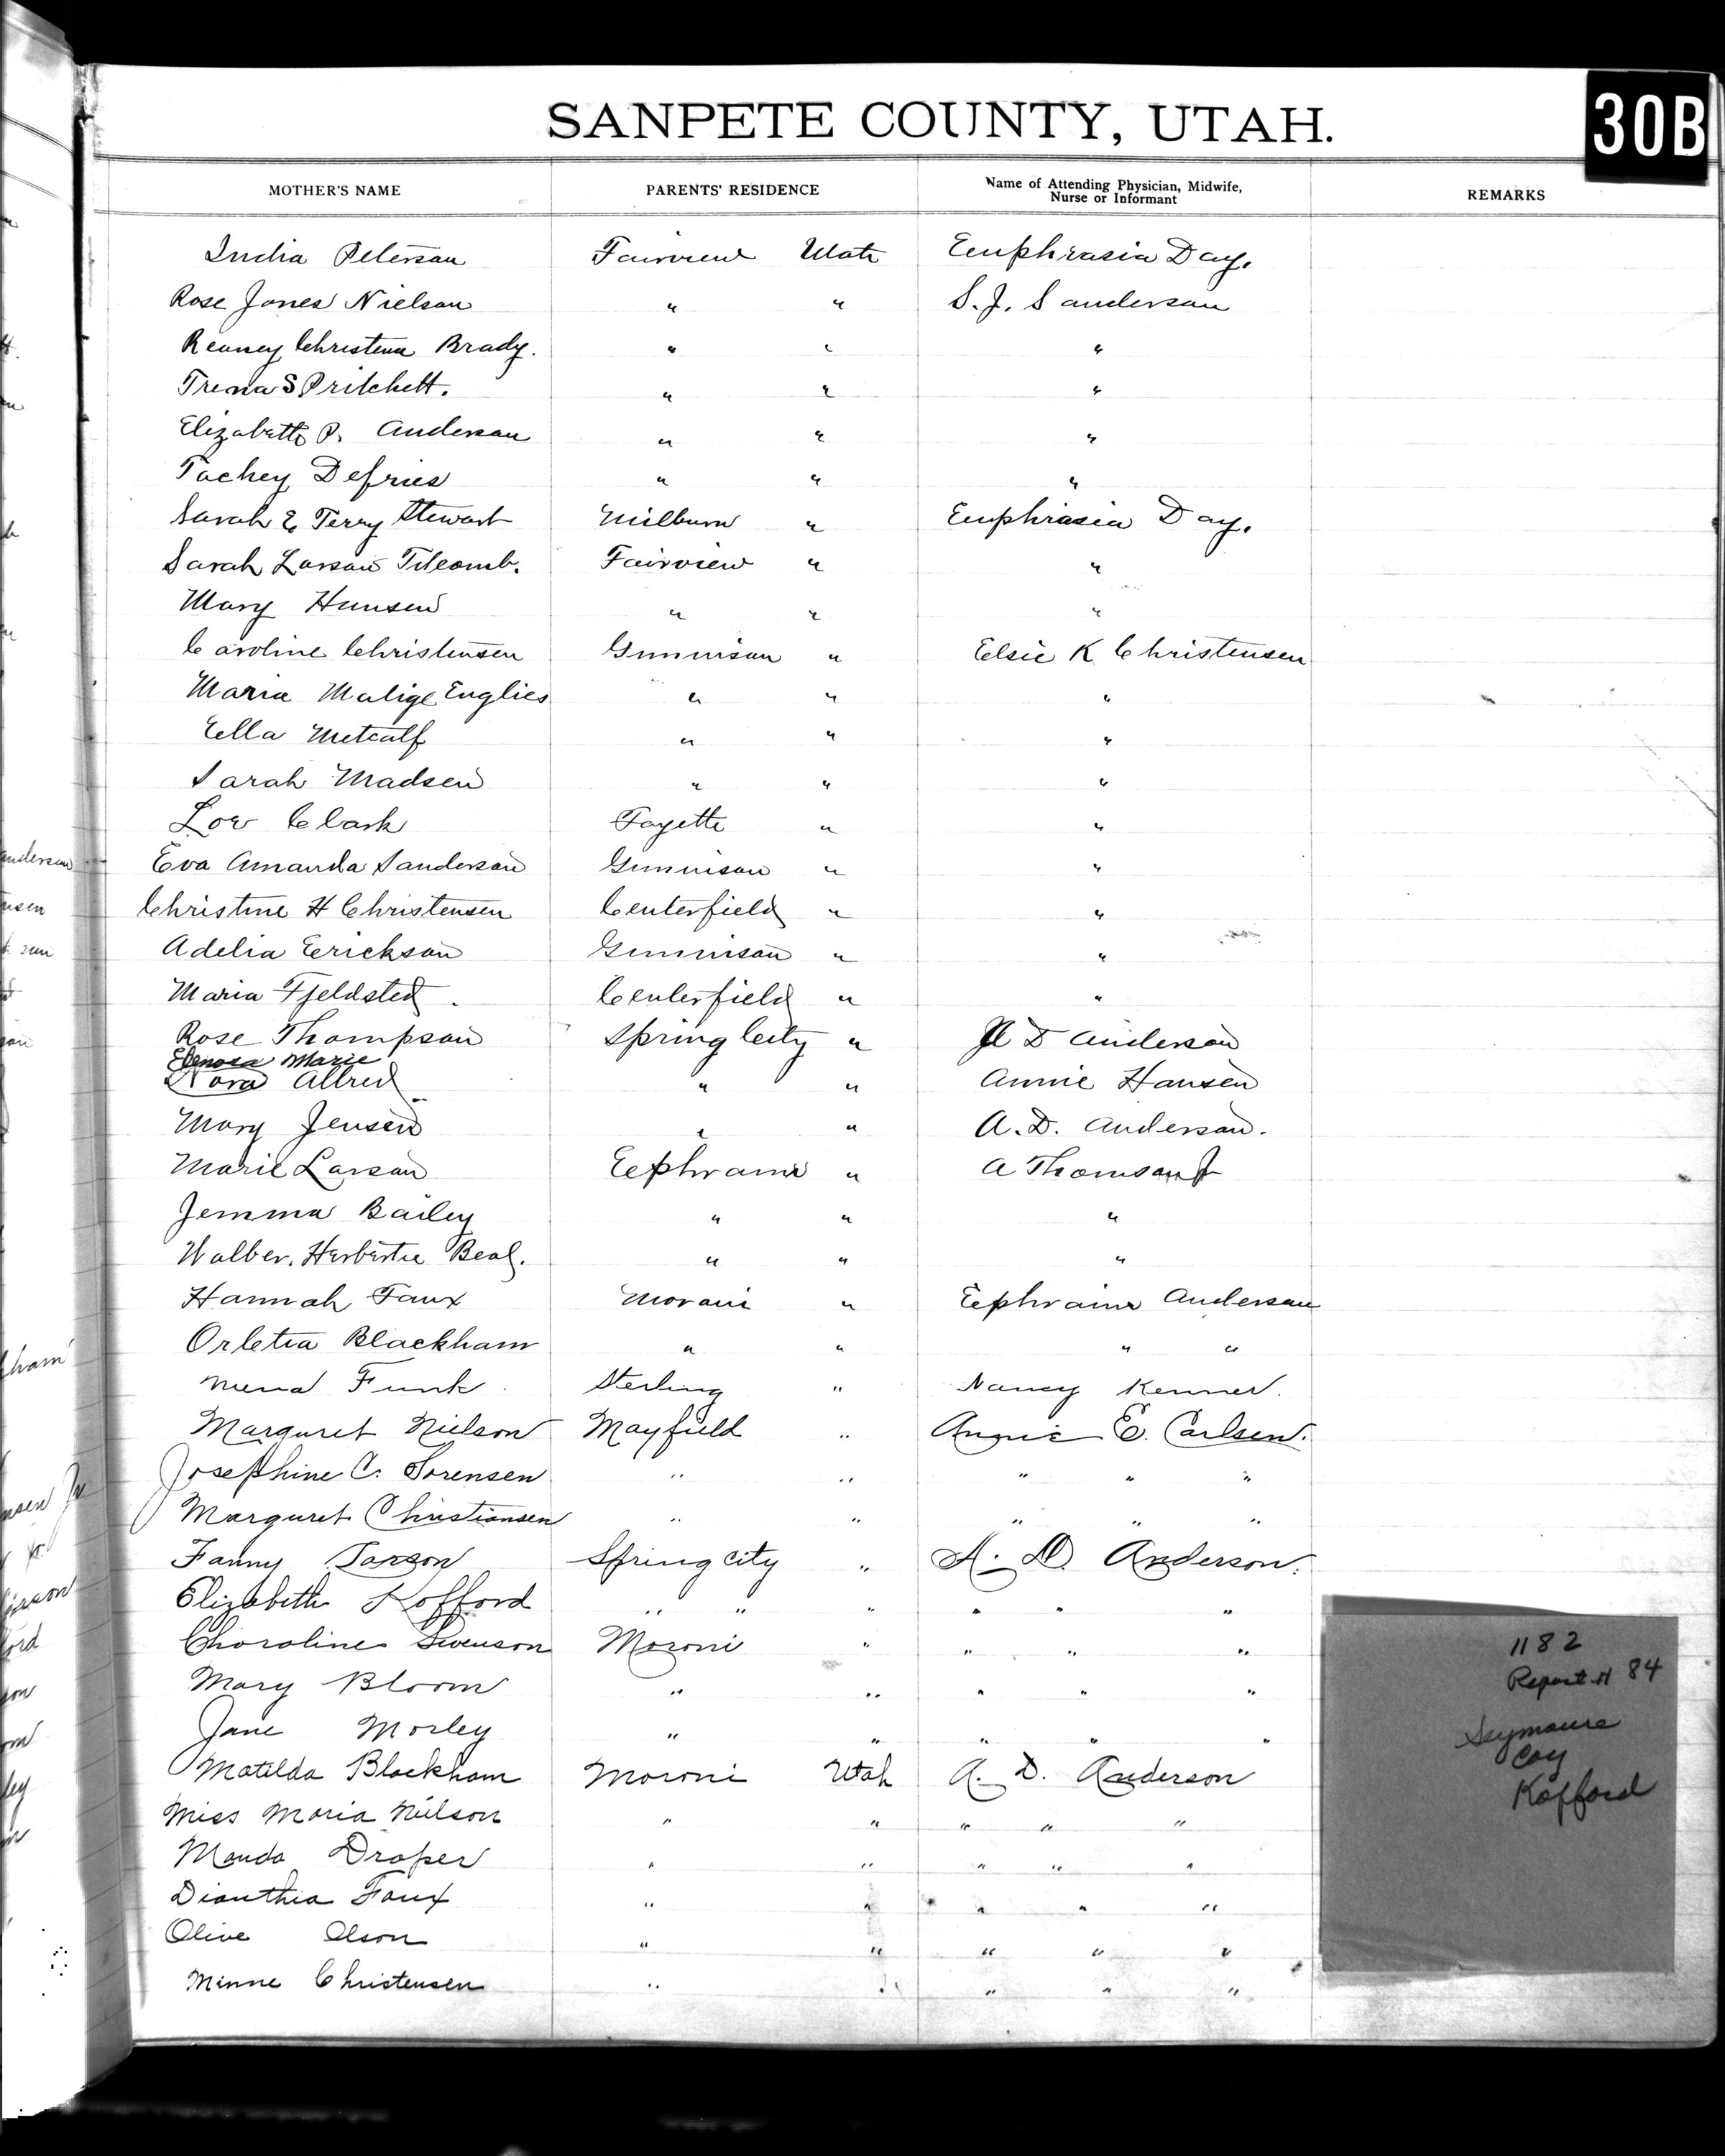 SANPETE COUNTY, UTAH.
30B
MOTHER'S NAME PARENTS' RESIDENCE Name of Attending Physician, Midwife, Nurse or Informant REMARKS
India Peterson Fairview Utah Euphrasia Day.
Rose Jones Nielson " " S. J. Sanderson
Christena Brady. " " "
Trena S Pritchett. " " "
Elizabeth P. Anderson " " "
Tachey Defries " " "
Sarah E Terry Stewart Milburn " Euphrasia Day.
Sarah Larsen Titcomb. Fairview " "
Mary Hansen " " "
Caroline Christensen Gunnison " Elsie K Christensen
Maria Malige Englies " " "
Ella Metcalf " " "
Sarah Madsen " " "
Lov Clark Fayette " "
Eva Amanda Sanderson Gunnison " "
Christine H Christensen Centerfield " "
Adelia Erickson Gunnison " "
Maria Fjeldsted Centerfield " "
Rose Thompson Spring City " A D Anderson
Elenora Marie
Nora Allred " " Annie Hansen
Mary Jensen " " A. D. Anderson.
Marie Larsen Ephraim " A Thomson
Jemma Bailey " " "
Walber. Herbertie Beal. " " "
Hannah Faux Moroni " Ephraim Anderson
Orletia Blackham " " " "
Mena Funk Sterling " Nancy Kenner.
Margaret Nielson Mayfield " Annie E. Carlsen.
Josephine C. Sorensen " " " " "
Margaret Christiansen " " " " "
Fanny Larson Spring City " A. D. Anderson.
Elizabeth Kofford " " " " " "
Choroline Swenson Moroni " " " "
Mary Bloom " " " " "
Jane Morley " " " " "
Matilda Blackham Moroni Utah A. D. Anderson
Miss Maria Nielson " " " " "
Manda Draper " " " " "
Dianthia Faux " " " " "
Olive Olson " " " " "
Minne Christensen " " " " "
1182
Report # 84
Seymoure
Coy
Kofford